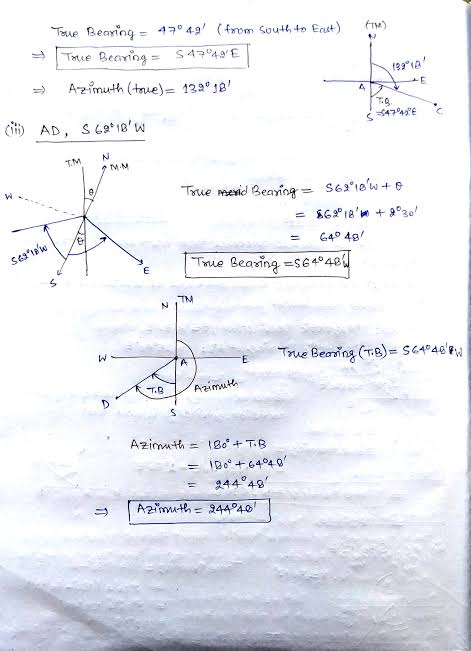 True Bearing = 47°42' (from South to East)
⇒ True Bearing = S47°42'E
⇒ Azimuth (true) = 132°18'
(TM)
N
132°18'
A
E
T.B
S
=S47°42'E
C
(iii) AD, S62°18'W
T.M
N
M.M
θ
W
θ
S62°18'W
S
E
True Bearing = S62°18'W + θ
= S62°18' + 2°30'
= 64°48'
True Bearing = S64°48'W
N
TM
W
A
E
T.B
Azimuth
D
S
True Bearing (T.B) = S64°48'W
Azimuth = 180° + T.B
= 180° + 64°48'
= 244°48'
⇒ Azimuth = 244°48'